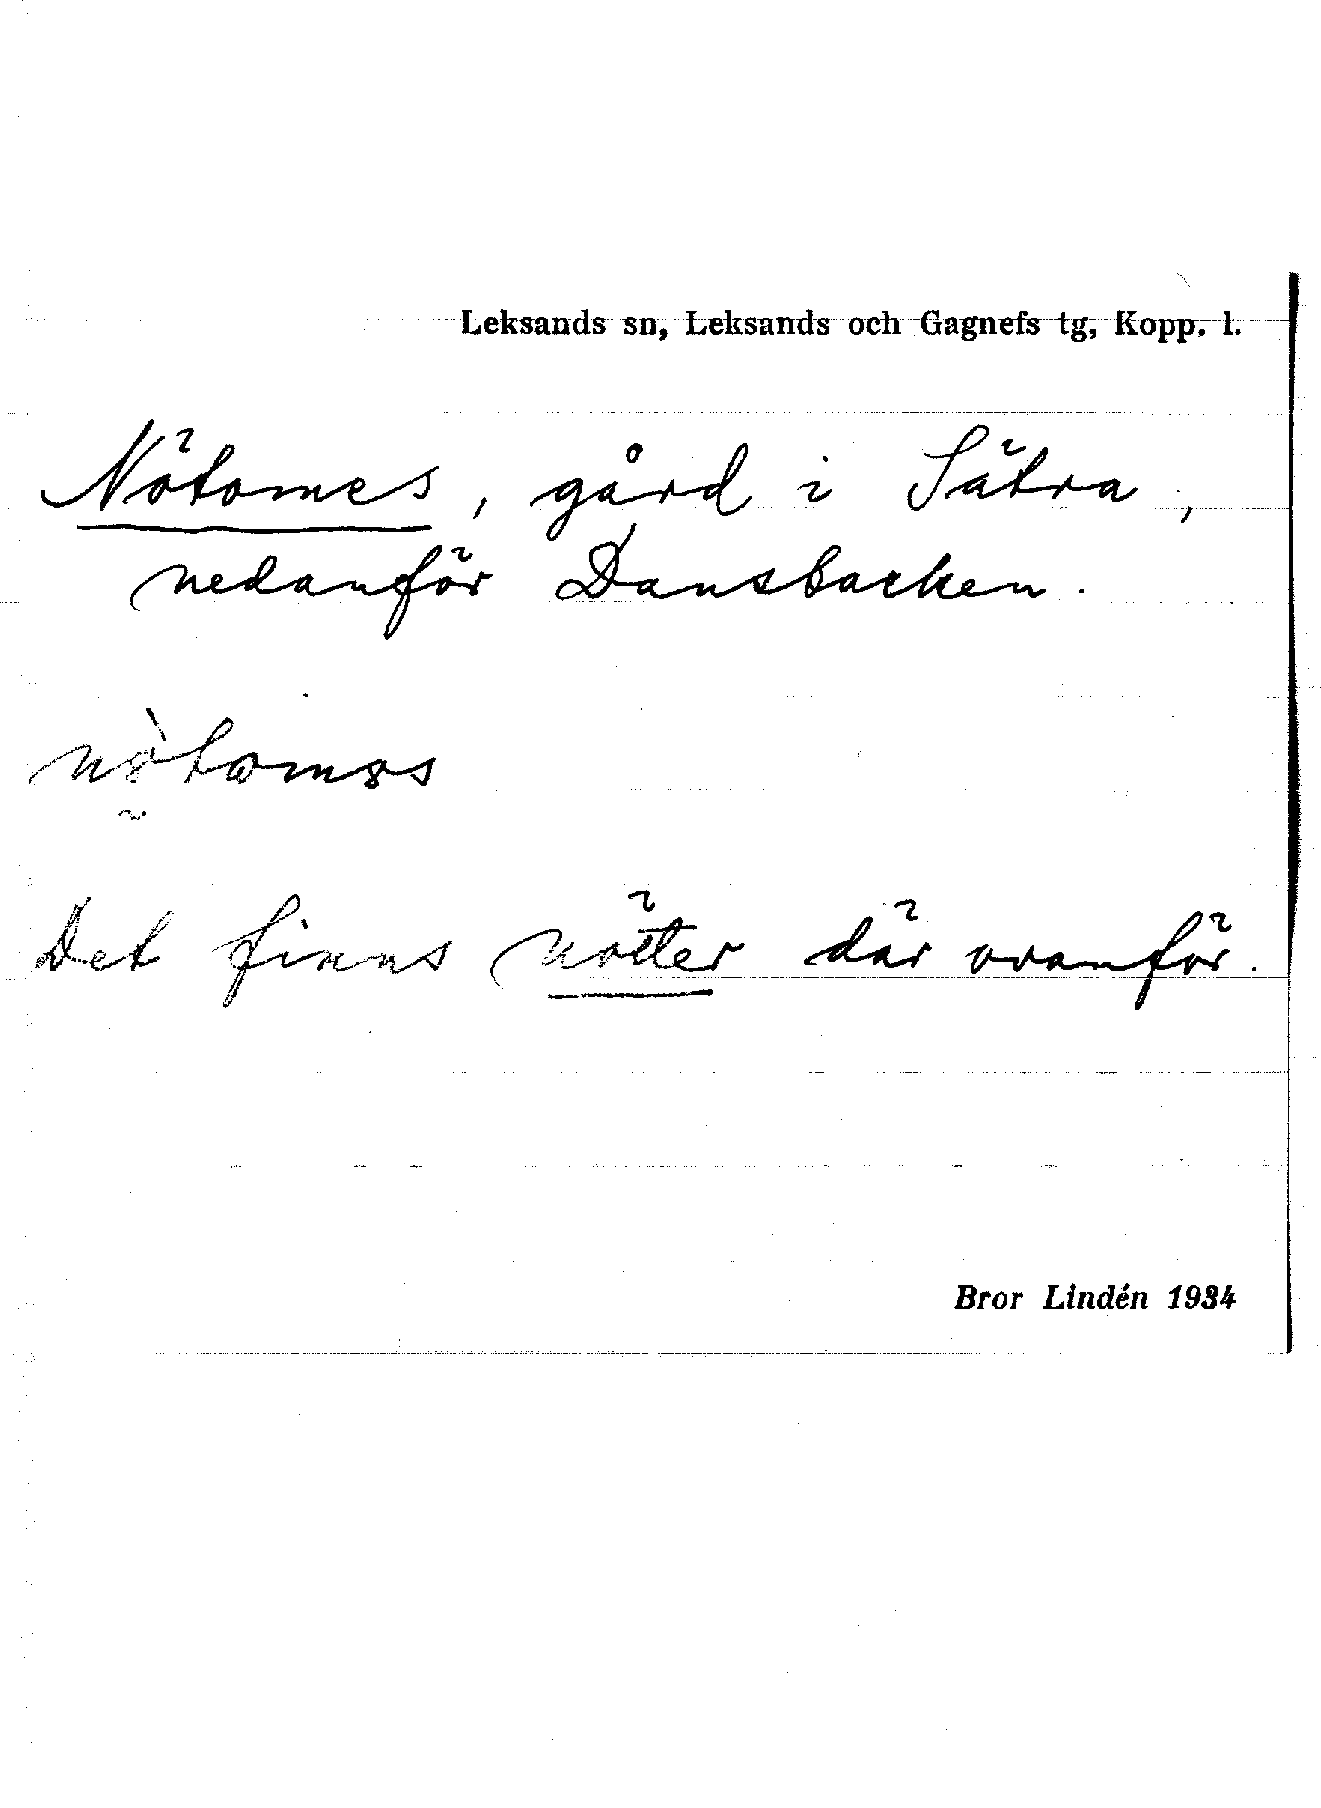 Leksands sn, Leksands och Gagnefs tg, Kopp. l.
Nötomes, gård i Sätra,
nedanför Dansbacken.
Det finns nötter där ovanför.
Bror Lindén 1934